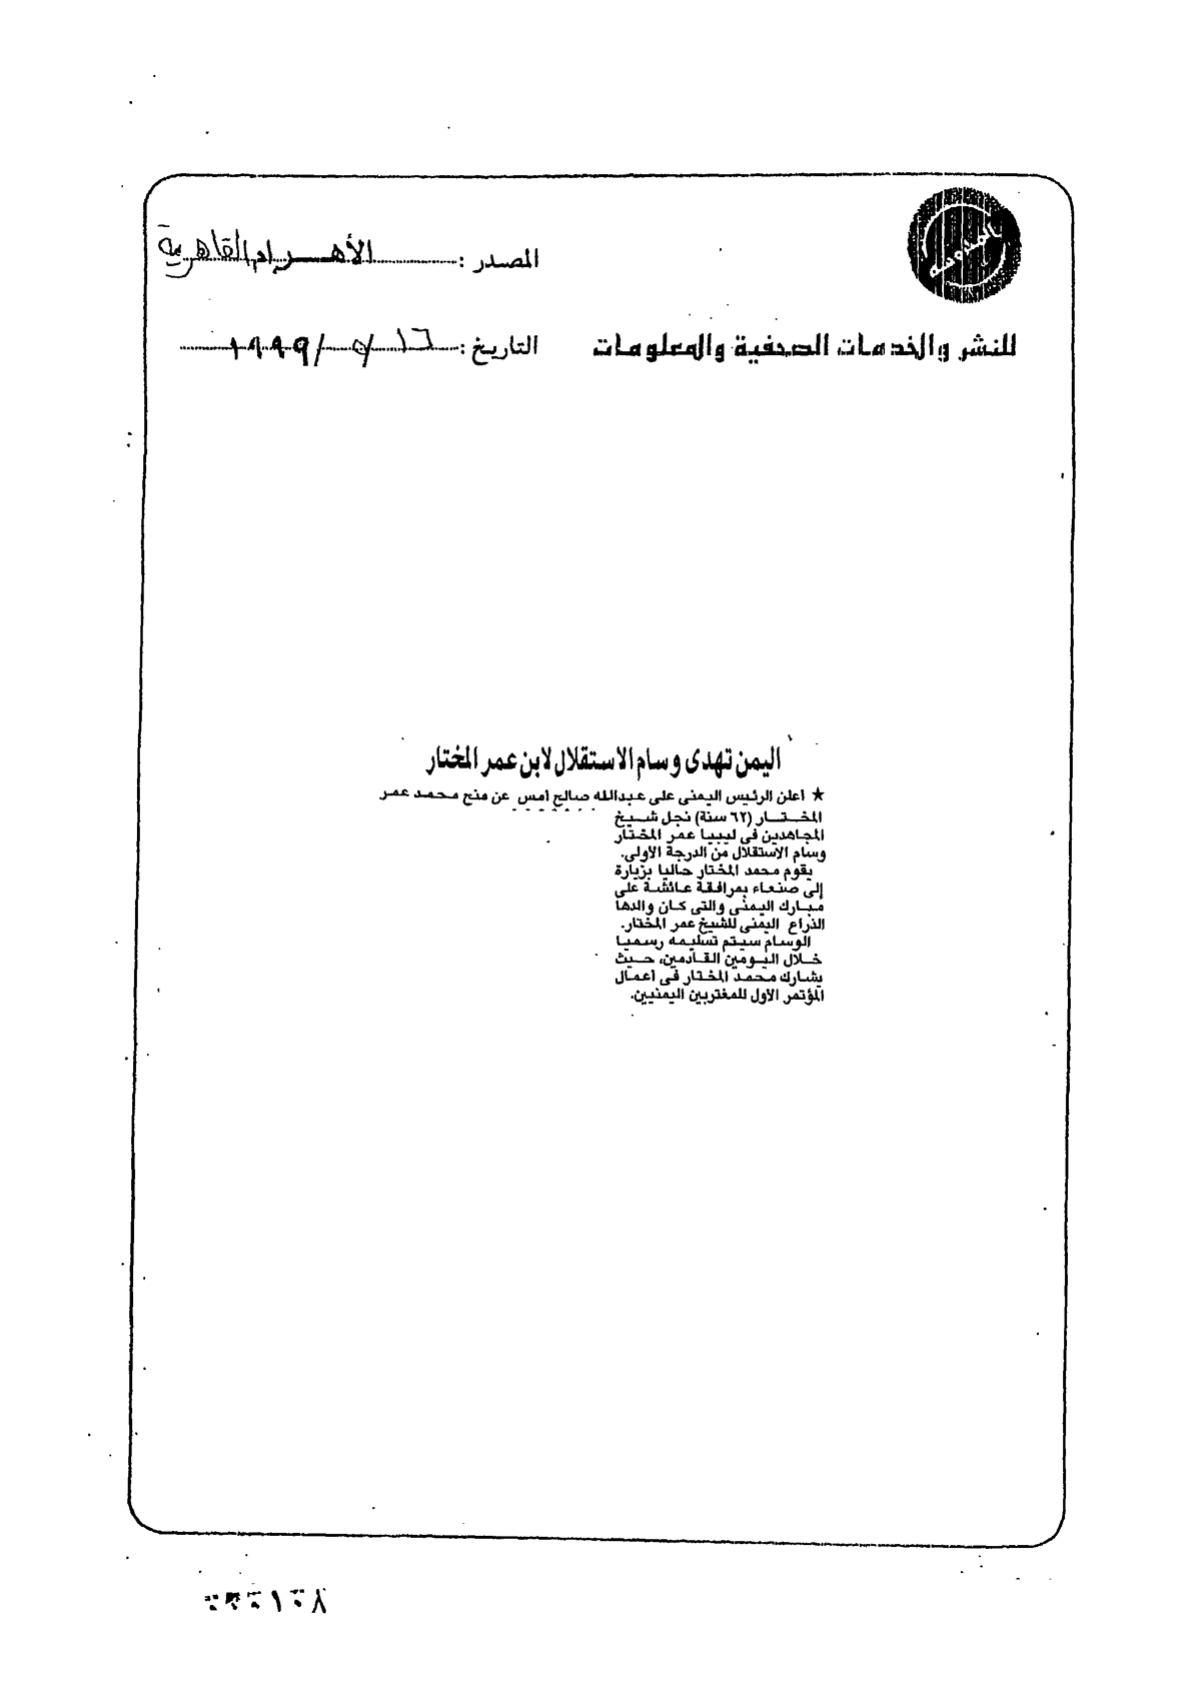 المصدر : الأهرام القاهرية
للنشر والخدمات الصحفية والمعلومات
التاريخ : ١٦ / ٥ / ١٩٩٩
اليمن تهدى وسام الاستقلال لابن عمر المختار
★ أعلن الرئيس اليمنى على عبدالله صالح أمس عن منح محمد عمر
المختار (٦٢ سنة) نجل شيخ
المجاهدين فى ليبيا عمر المختار
وسام الاستقلال من الدرجة الأولى.
يقوم محمد المختار حاليا بزيارة
إلى صنعاء بمرافقة عائشة على
مبارك اليمنى والتى كان والدها
الذراع اليمنى للشيخ عمر المختار.
الوسام سيتم تسليمه رسميا
خلال اليومين القادمين، حيث
يشارك محمد المختار فى أعمال
المؤتمر الأول للمغتربين اليمنيين.